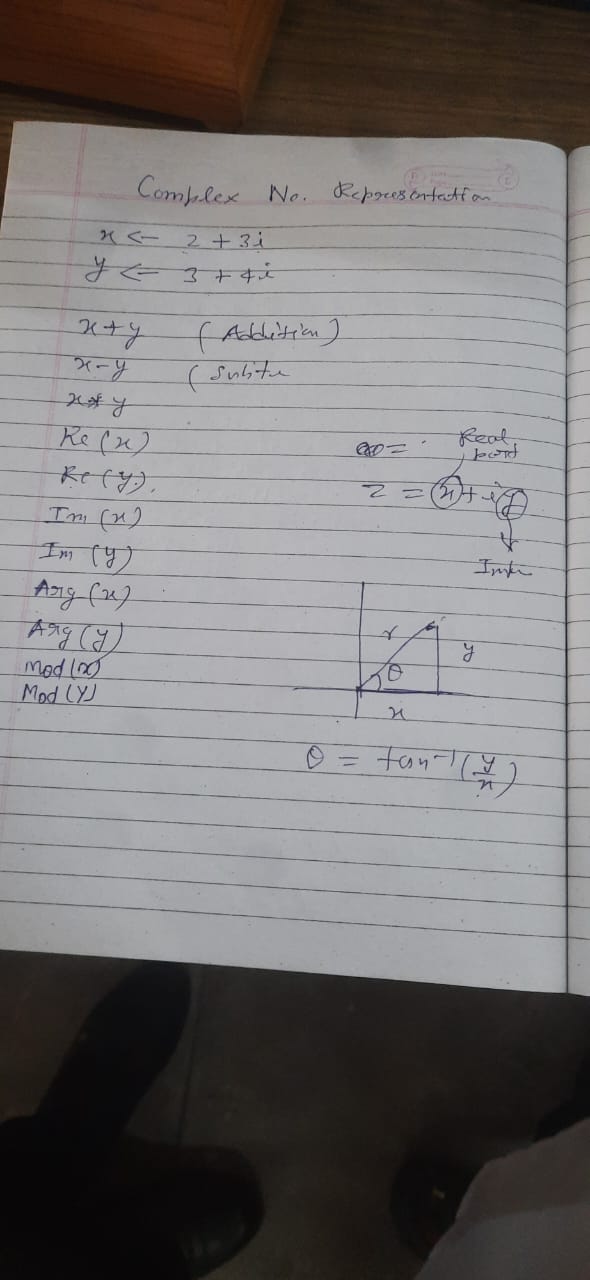 Complex No. Representation
x <- 2 + 3i
y <- 3 + 4i
x+y (Addition)
x-y (
x * y
Re (x)
Re (y).
Im (x)
Im (y)
Arg (x)
Arg (y)
Mod (x)
Mod (Y)
Real
part
z = x + iy
r
θ
y
x
θ = tan-1 (y/x)